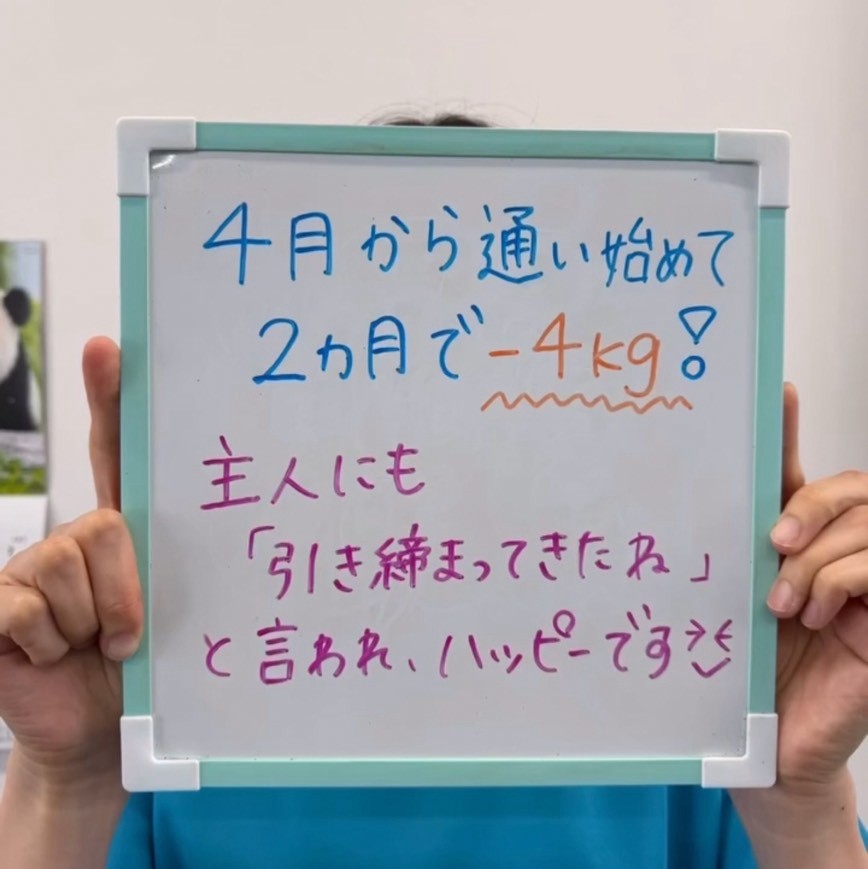 4月から通い始めて
2ヵ月で-4kg!
主人にも
「引き締まってきたね」
と言われ、ハッピーです